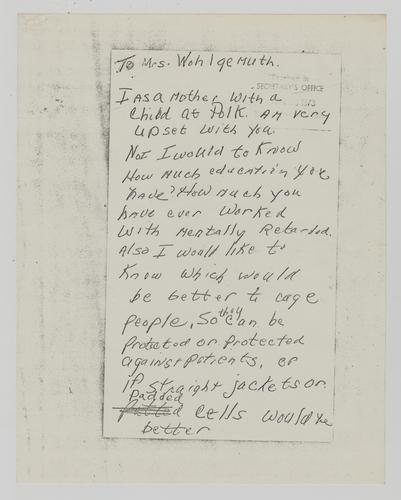 To Mrs. Wohlgemuth.
SECRETARY'S OFFICE
I as a Mother with a
child at Polk. Am very
upset with you.
Not I would to Know
How much education you
have? How much you
have ever worked
with Mentally Retarded.
Also I would like to
Know which would
be better to cage
people, So they can be
protected or protected
against patients, or
if straight jackets or
padded cells would be
better